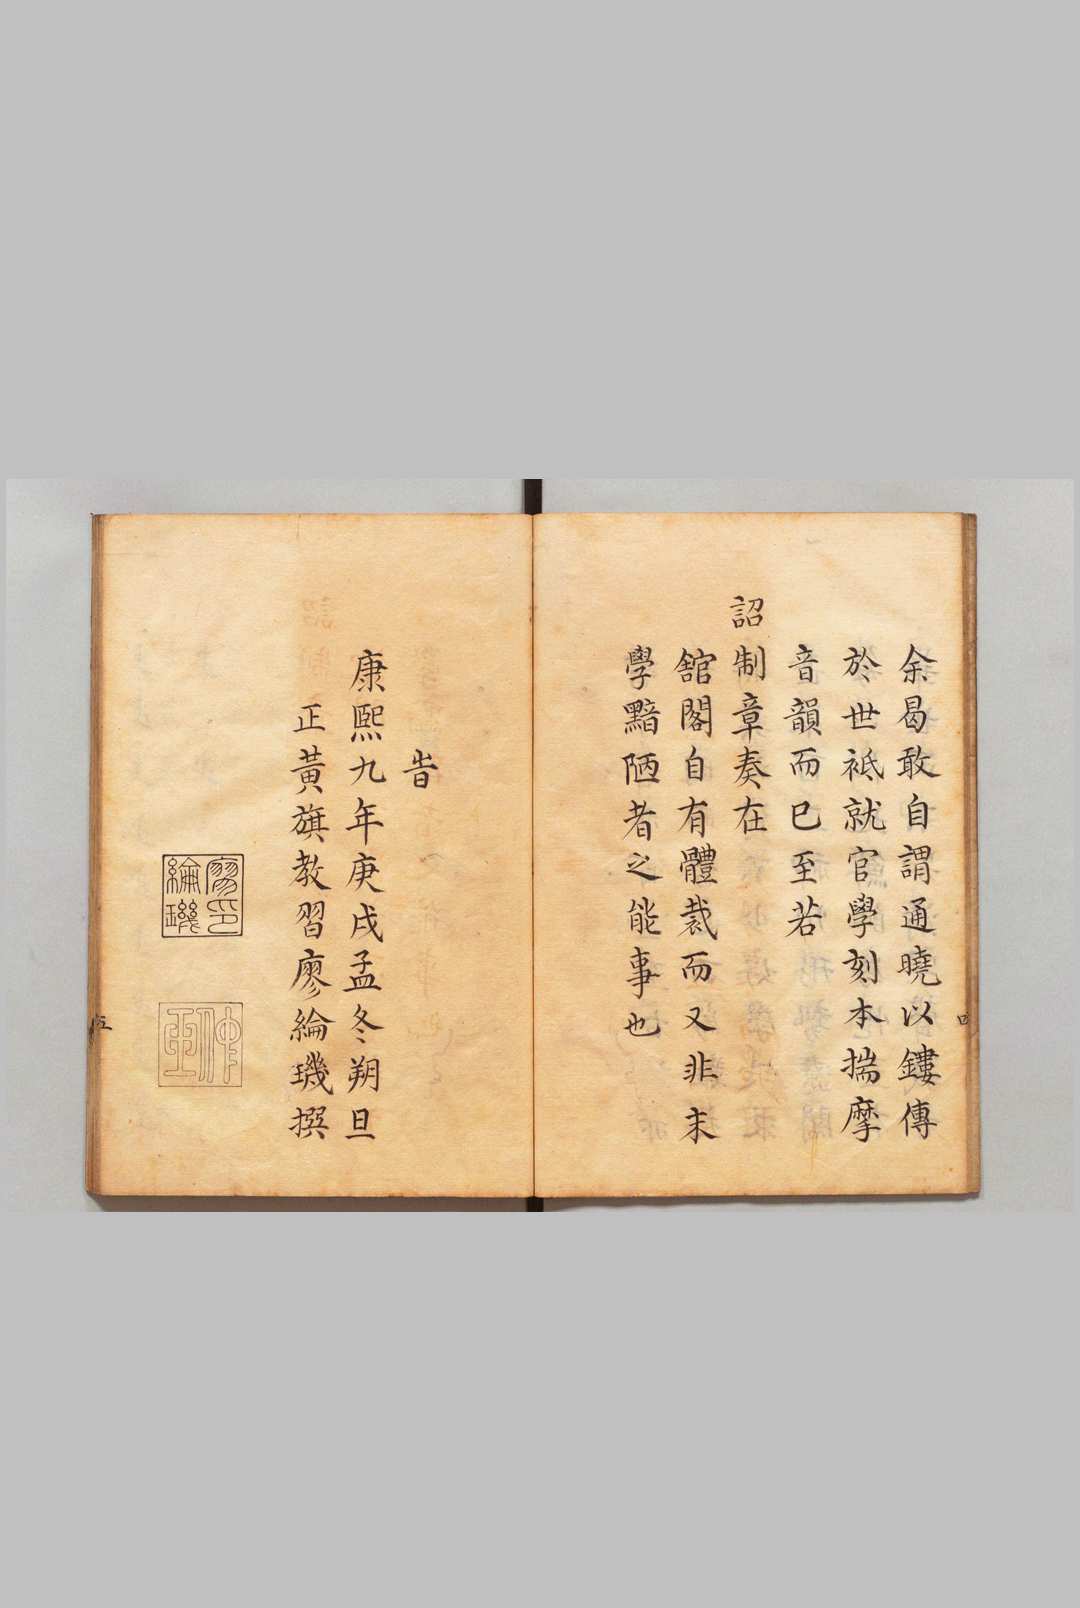 余曷敢自謂通曉以鏤傳
於世祗就官學刻本揣摩
音韻而已至若
詔制章奏在
舘閣自有體裁而又非末
學黯陋者之能事也
四
旹
康熙九年庚戌孟冬朔旦
正黃旗教習廖綸璣撰
廖印
綸璣
五